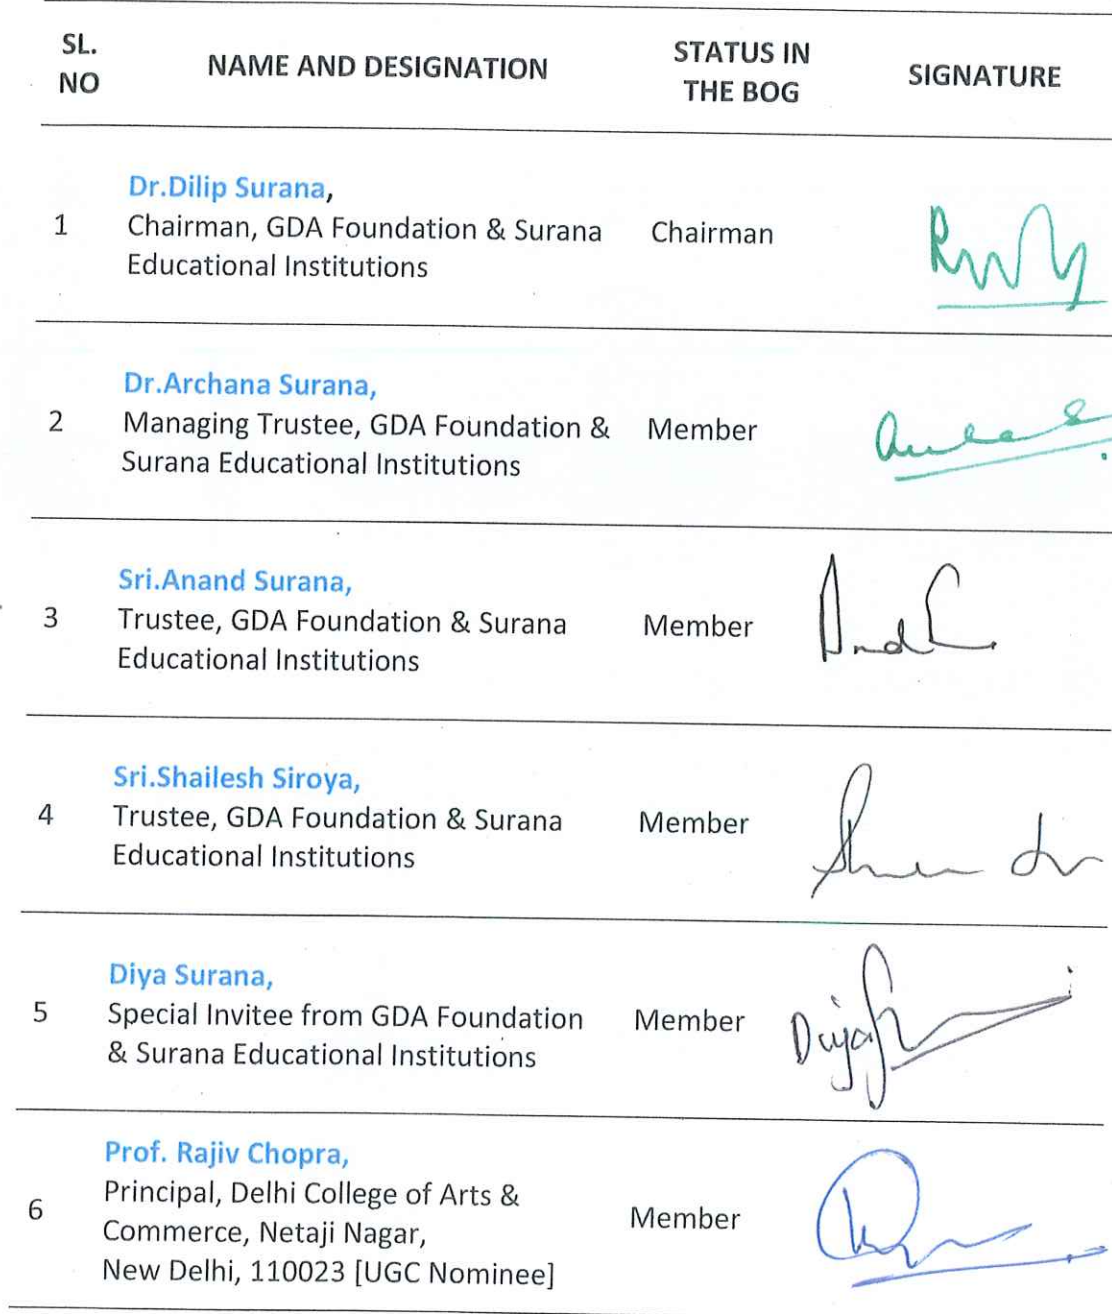 SL. NO NAME AND DESIGNATION STATUS IN THE BOG SIGNATURE
Dr.Dilip Surana,
1 Chairman, GDA Foundation & Surana Chairman
Educational Institutions
Dr.Archana Surana,
2 Managing Trustee, GDA Foundation & Member
Surana Educational Institutions
Sri.Anand Surana,
3 Trustee, GDA Foundation & Surana Member
Educational Institutions
Sri.Shailesh Siroya,
4 Trustee, GDA Foundation & Surana Member
Educational Institutions
Diya Surana,
5 Special Invitee from GDA Foundation Member
& Surana Educational Institutions
Prof. Rajiv Chopra,
Principal, Delhi College of Arts &
6 Commerce, Netaji Nagar, Member
New Delhi, 110023 [UGC Nominee]